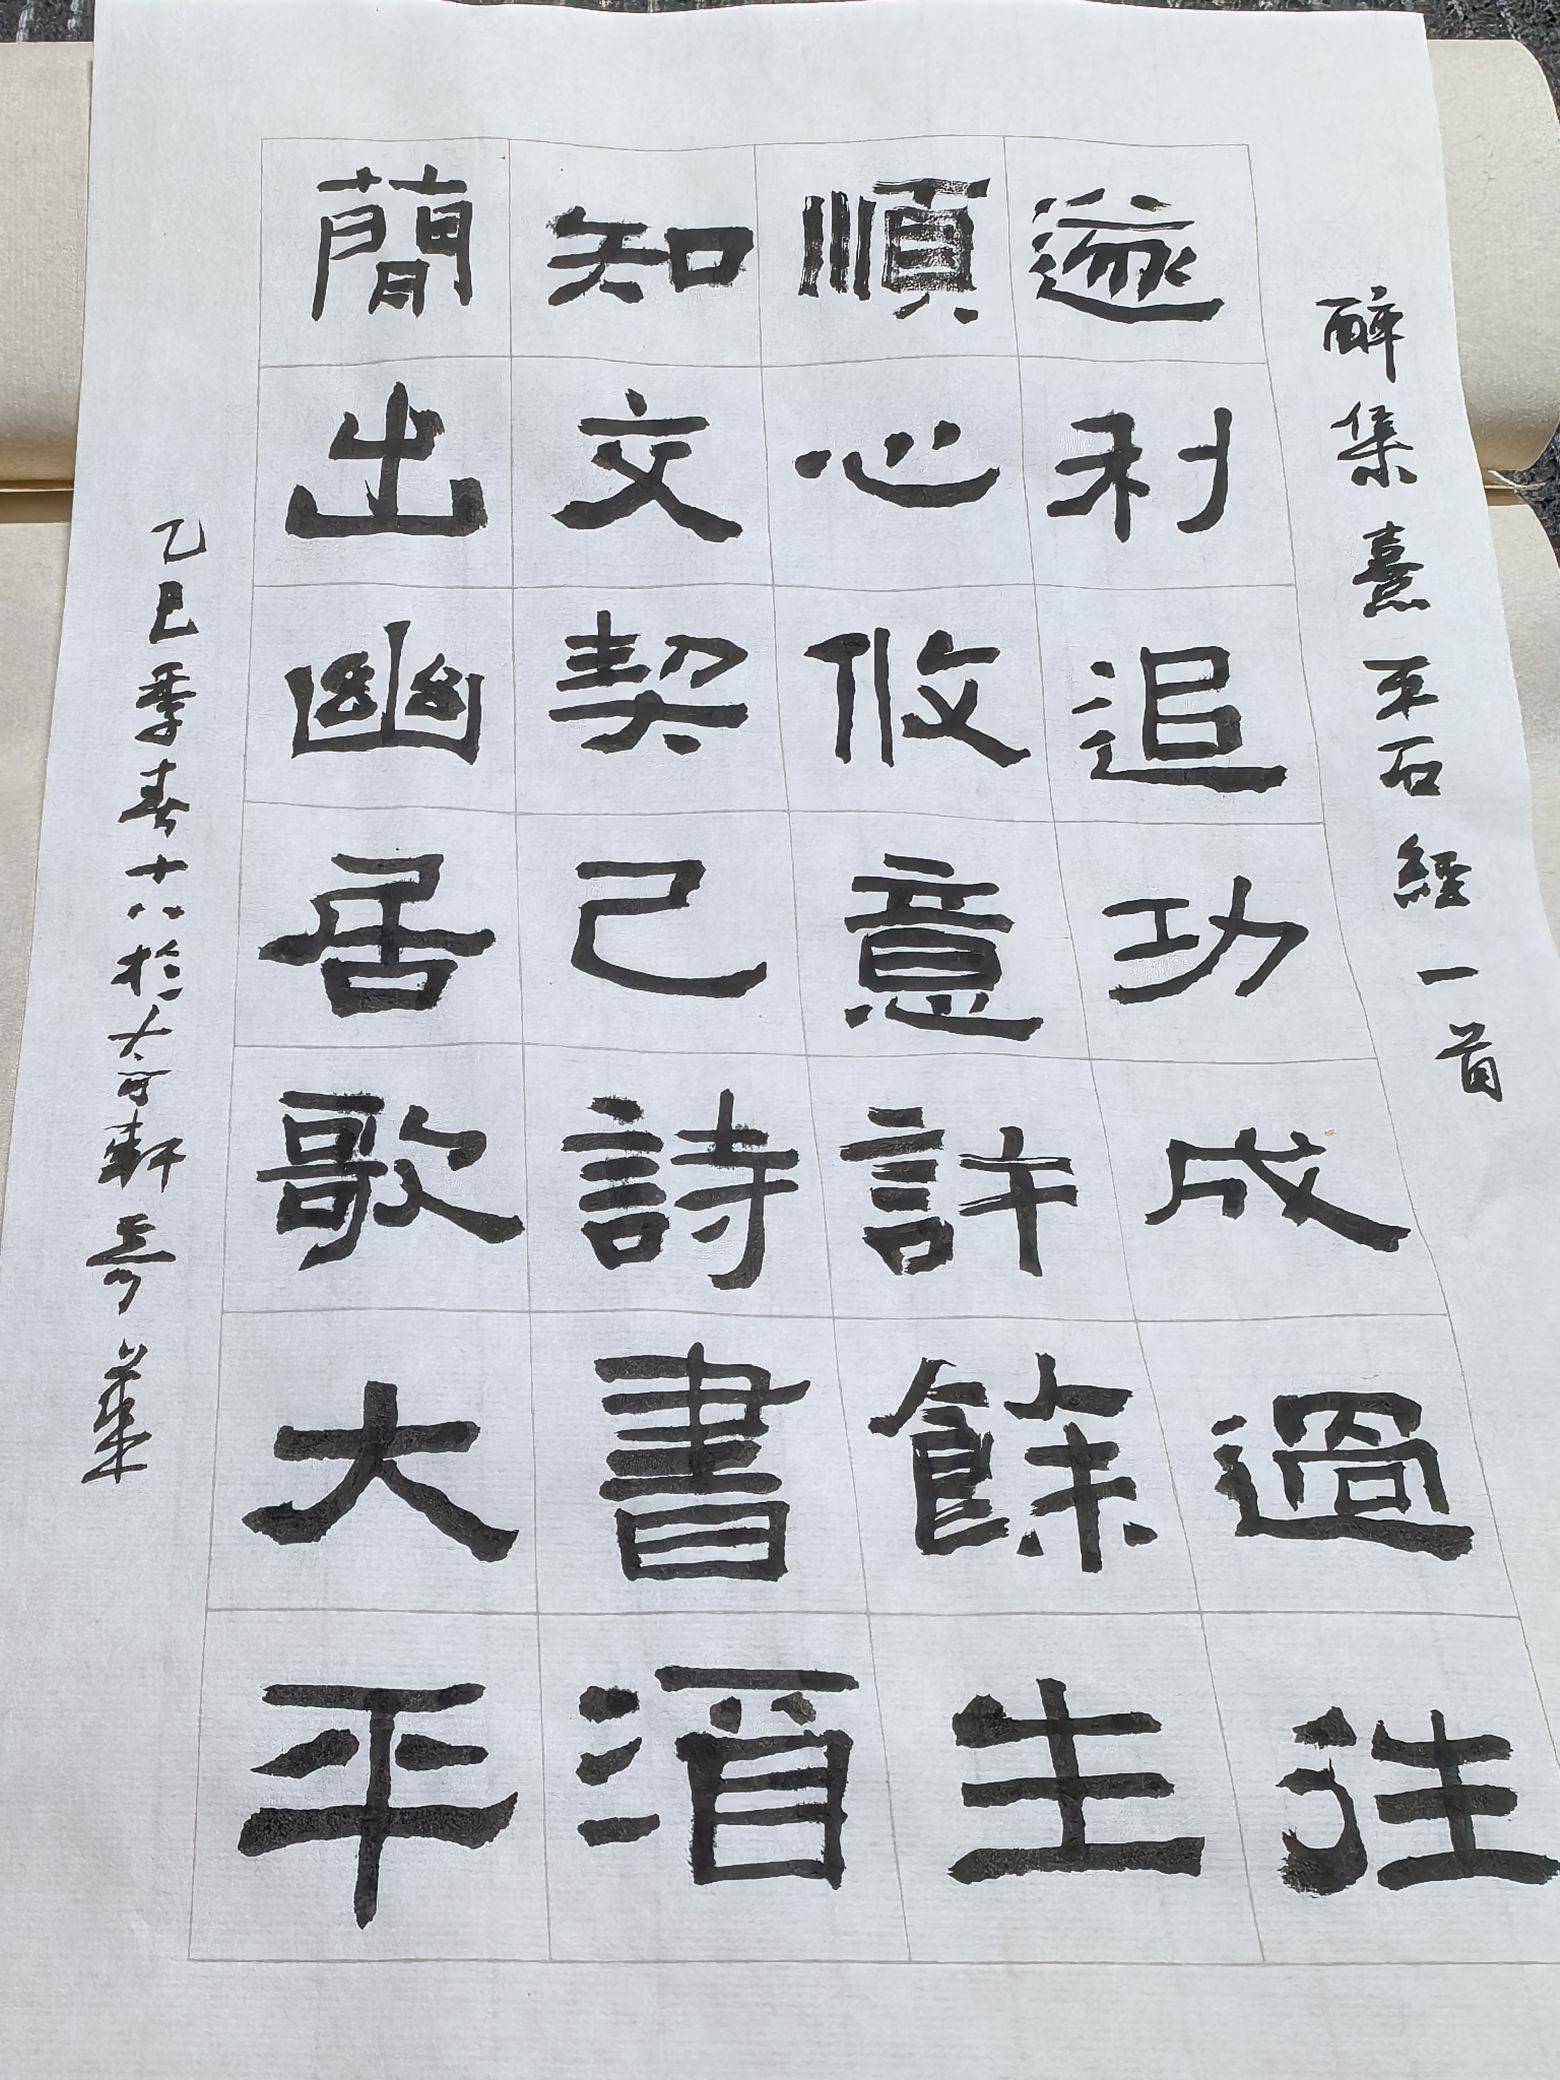 醉集熹平石經一首
遂利追功成過往
順心攸意許餘生
知文契己詩書酒
蕳出幽居歌大平
乙巳季春十八於大可軒